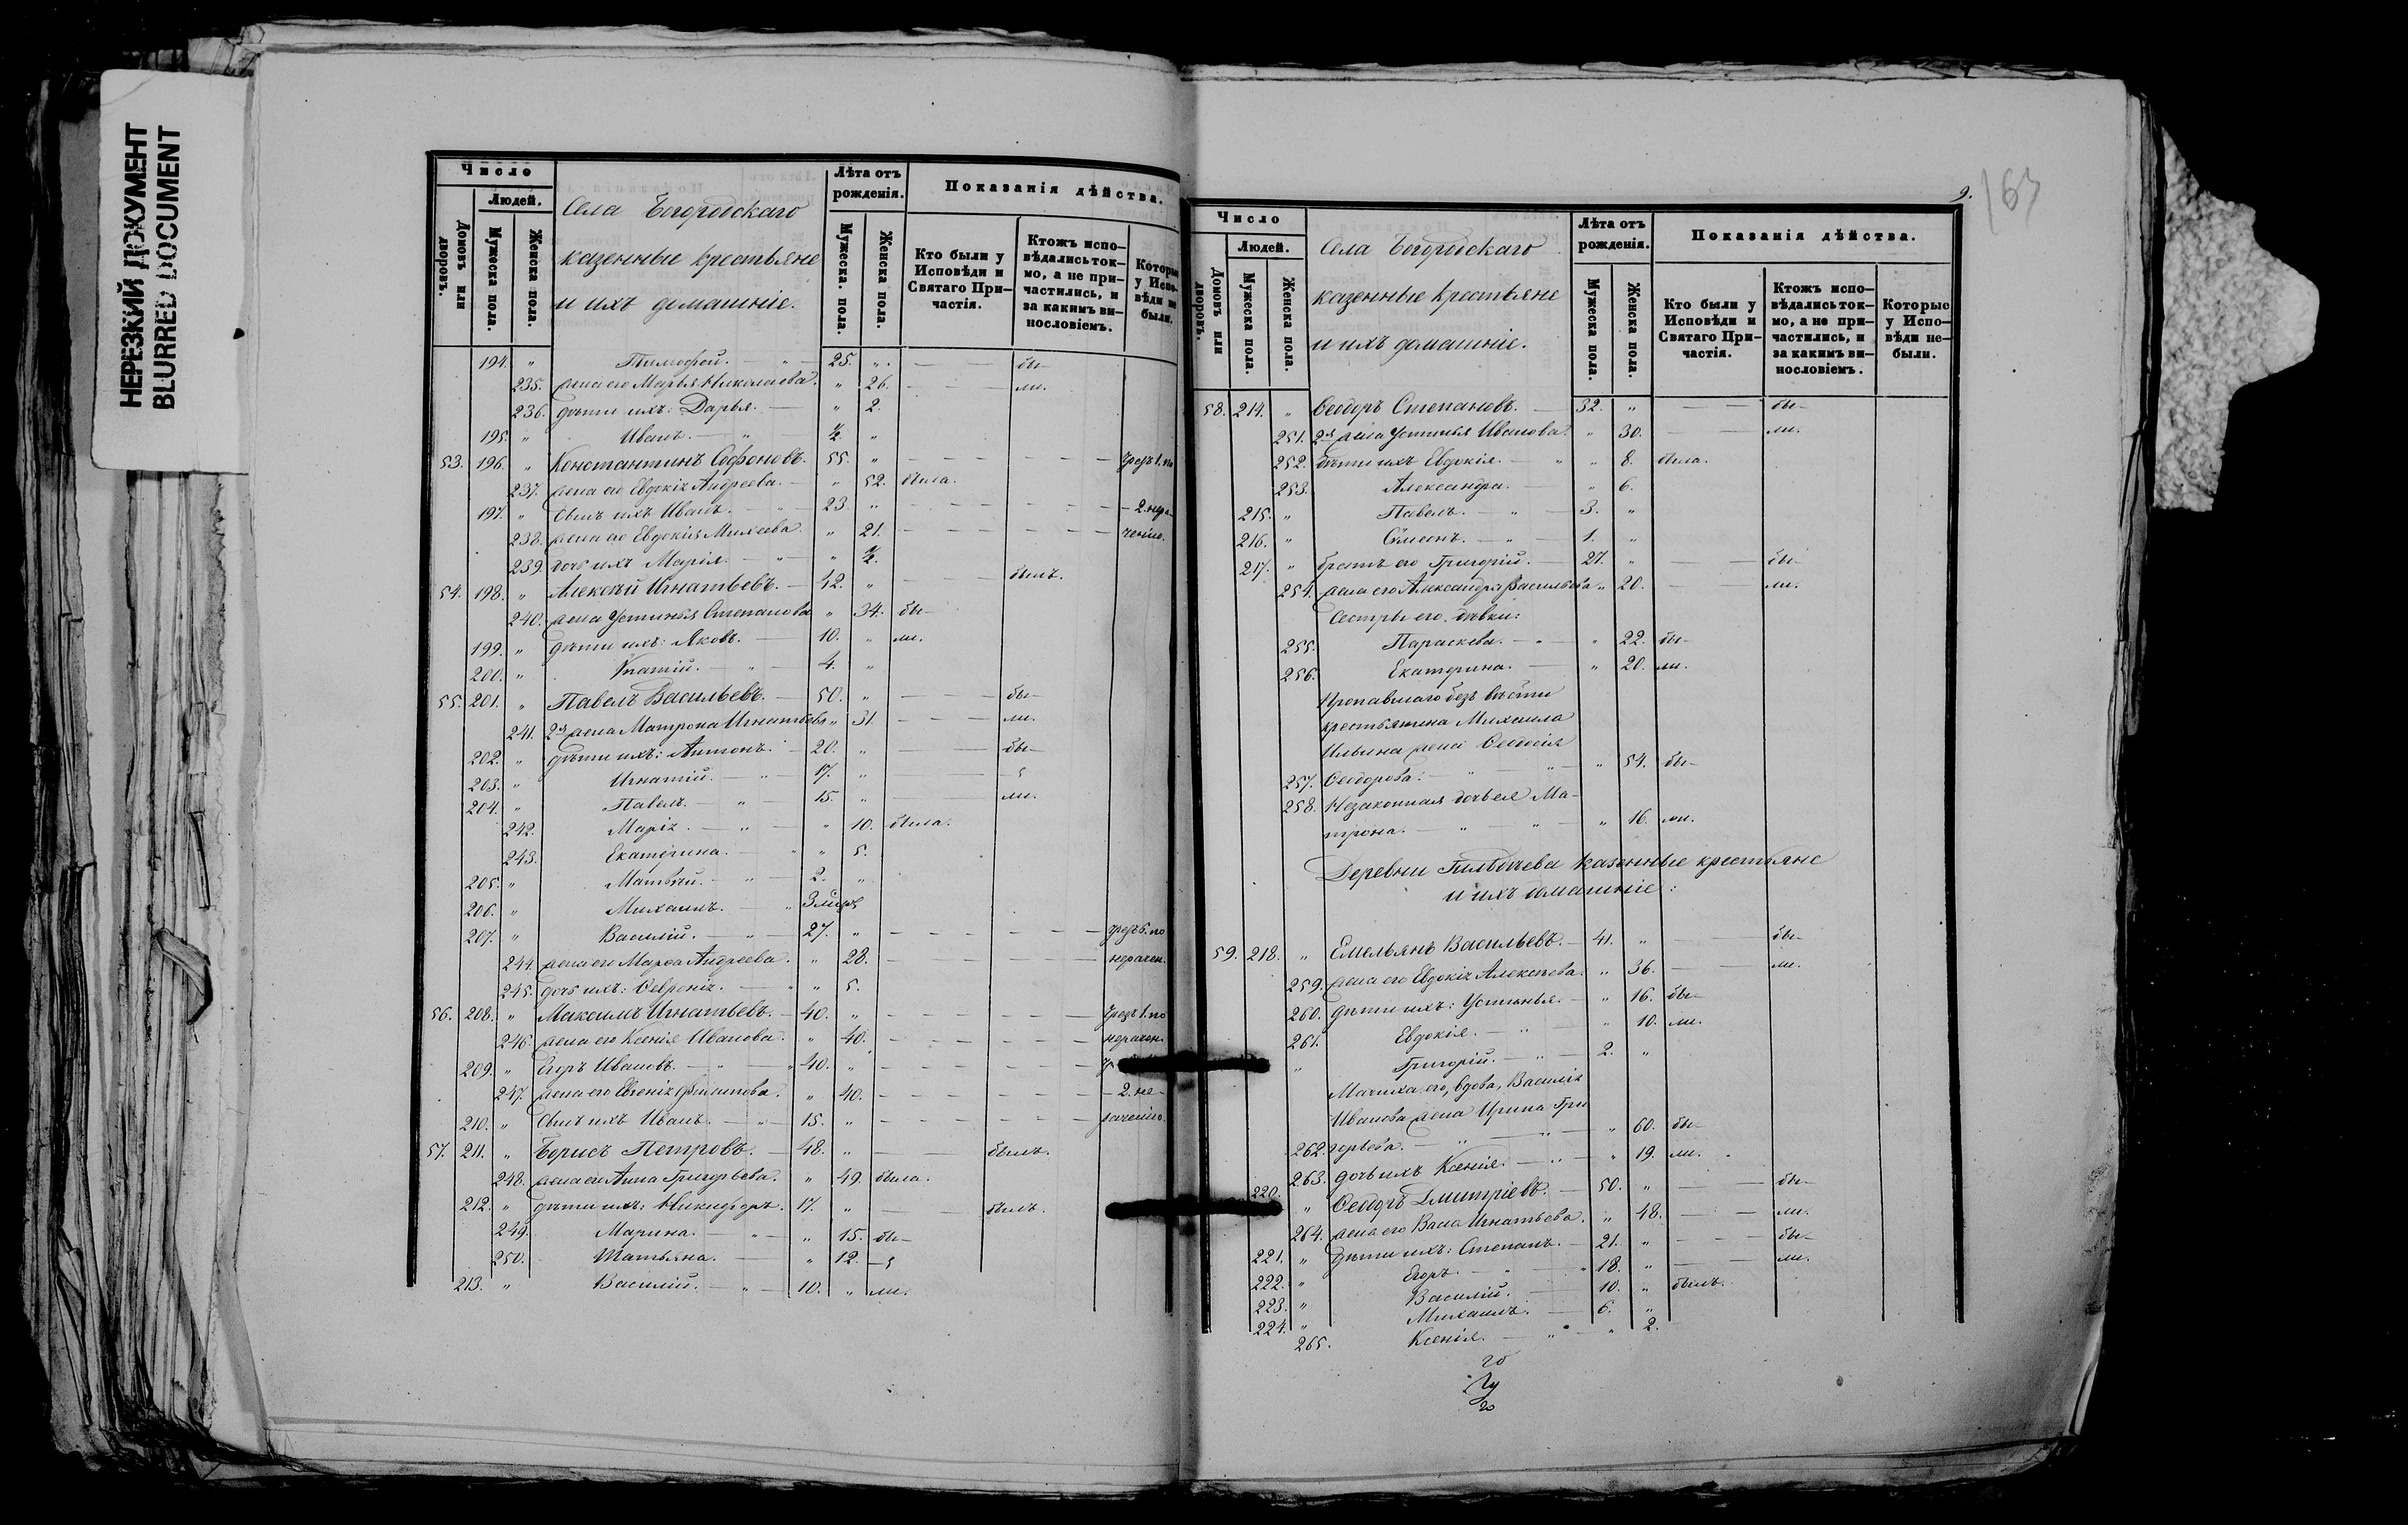 НЕРЕЗКИЙ ДОКУМЕНТ
BLURRED DOCUMENT
Число
Людей.
Домовъ или дворовъ.
Мужеска пола.
Женска пола.
Села Богородскаго
казенные крестьяне
и ихъ домашніе.
Лѣта отъ рожденія.
Мужеска пола.
Женска пола.
Показанія дѣйства.
Кто были у Исповѣди и Святаго Причастія.
Ктожъ исповѣдались токмо, а не причастились, и за какимъ винословіемъ.
Которые у Исповѣди не были.
194. " Тимофей. — " — 25. " — — бы-
235. жена его Марья Николаева. " 26. — — ли.
236. дѣти ихъ: Дарья. — " 2.
195. " Иванъ. — " — ½. "
53. 196. " Константинъ Софоновъ. 55. " — — — — — чрезъ 1. по
237. жена его Евдокія Андреева. — " 52. была.
197. " Сынъ ихъ Иванъ. — " — 23. " — — — — — 2. нера-
238. жена его Евдокія Михеева. " 21. — — — — — ченію.
239. дочь ихъ Марія. — " — " ½.
54. 198. " Алексѣй Игнатьевъ. — 42. " — — былъ.
240. жена Устинья Степанова " 34. бы-
199. " дѣти ихъ: Яковъ. — 10. " ли.
200. " Ипатій. — " — 4. "
55. 201. " Павелъ Васильевъ. — 50. " — — — бы-
241. 2я жена Матрона Игнатьева " 31. — — — ли.
202. " дѣти ихъ: Антонъ. — 20. " — — бы-
203. " Игнатій. — " — 17. " — —
204. " Павелъ. — " — 15. " — — ли.
242. Марія. — " — " 10. была.
243. Екатерина. — " " 5.
205. " Матвѣй. — " — 2. "
206. " Михаилъ. — "
207. " Василій. — " — 27. " — — — — — — чрезъ 6. по
244. жена его Марѳа Андреева. " 28. — — — — — нерачен.
245. дочь ихъ: Февронія. — " " 5.
56. 208. " Максимъ Игнатьевъ. — 40. " — — — — — чрезъ 1. по
246. жена его Ксенія Иванова. " 40. — — — — — нерачен.
209. " Егоръ Ивановъ. — " — " 40. " — — — — —
247. жена его Евгенія Филипова. " 40. — — — — — — 2. не-
210. " Сынъ ихъ Иванъ. — " — 15. " — — — — — рачению.
57. 211. " Борисъ Петровъ. — 48. " — — былъ.
248. жена его Анна Григорьева. " 49. была.
212. " дѣти ихъ: Никифоръ. 17. " — — былъ.
249. Марина. — " — " 15. бы-
250. Татьяна. — " 12. —
213. " Василій. — " — 10. " ли.
9.
163
Число
Людей.
Домовъ или дворовъ.
Мужеска пола.
Женска пола.
Села Богородскаго
казенные крестьяне
и ихъ домашніе.
Лѣта отъ рожденія.
Мужеска пола.
Женска пола.
Показанія дѣйства.
Кто были у Исповѣди и Святаго Причастія.
Ктожъ исповѣдались токмо, а не причастились, и за какимъ винословіемъ.
Которые у Исповѣди небыли.
58. 214. " Ѳеодоръ Степановъ. — 32. " — — бы-
251. 2я жена Устинья Иванова. " 30. — — ли.
252. дѣти ихъ Евдокія. — " " 8. была.
253. Александра. — " 6.
215. " Павелъ. — " — 3. "
216. " Симеонъ. — " — 1. "
217. " братъ его Григорій. — 27. " — — бы-
254. жена его Александра Васильева " 20. — — ли.
Сестры его, дѣвки:
255. Параскева. — " " 22. бы-
256. Екатерина. — " 20. ли.
Пропавшаго безъ вѣсти
крестьянина Михаила
Ильина жена Ѳеодосія
257. Ѳеодорова. — " — " — " 54. бы-
258. Незаконная дочь ея Ма-
трона. — " — " — " 16. ли.
Деревни казенные крестьяне
и ихъ домашніе:
59. 218. " Емельянъ Васильевъ. — 41. " — — бы-
259. жена его Евдокія Алексѣева. " 36. — — ли.
260. дѣти ихъ: Устинья. — " 16. бы-
261. Евдокія. — " " 10. ли.
" Григорій. — " — 2. "
Мачиха его, вдова, Василія
Иванова жена Ирина Гри
262. горьева. — " — " — " 60. бы-
263. дочь ихъ Ксенія. — " — " 19. ли.
220. " Ѳеодоръ Дмитріевъ. — 50. " — — бы-
264. жена его Васса Игнатьева. " 48. — — ли.
221. " дѣти ихъ: Степанъ. — 21. " — — бы-
222. " Егоръ. — " — " 18. " — — ли.
223. " Василій. — 10. " былъ.
224. " Михаилъ. — 6. "
265. Ксенія. — " — " 2.